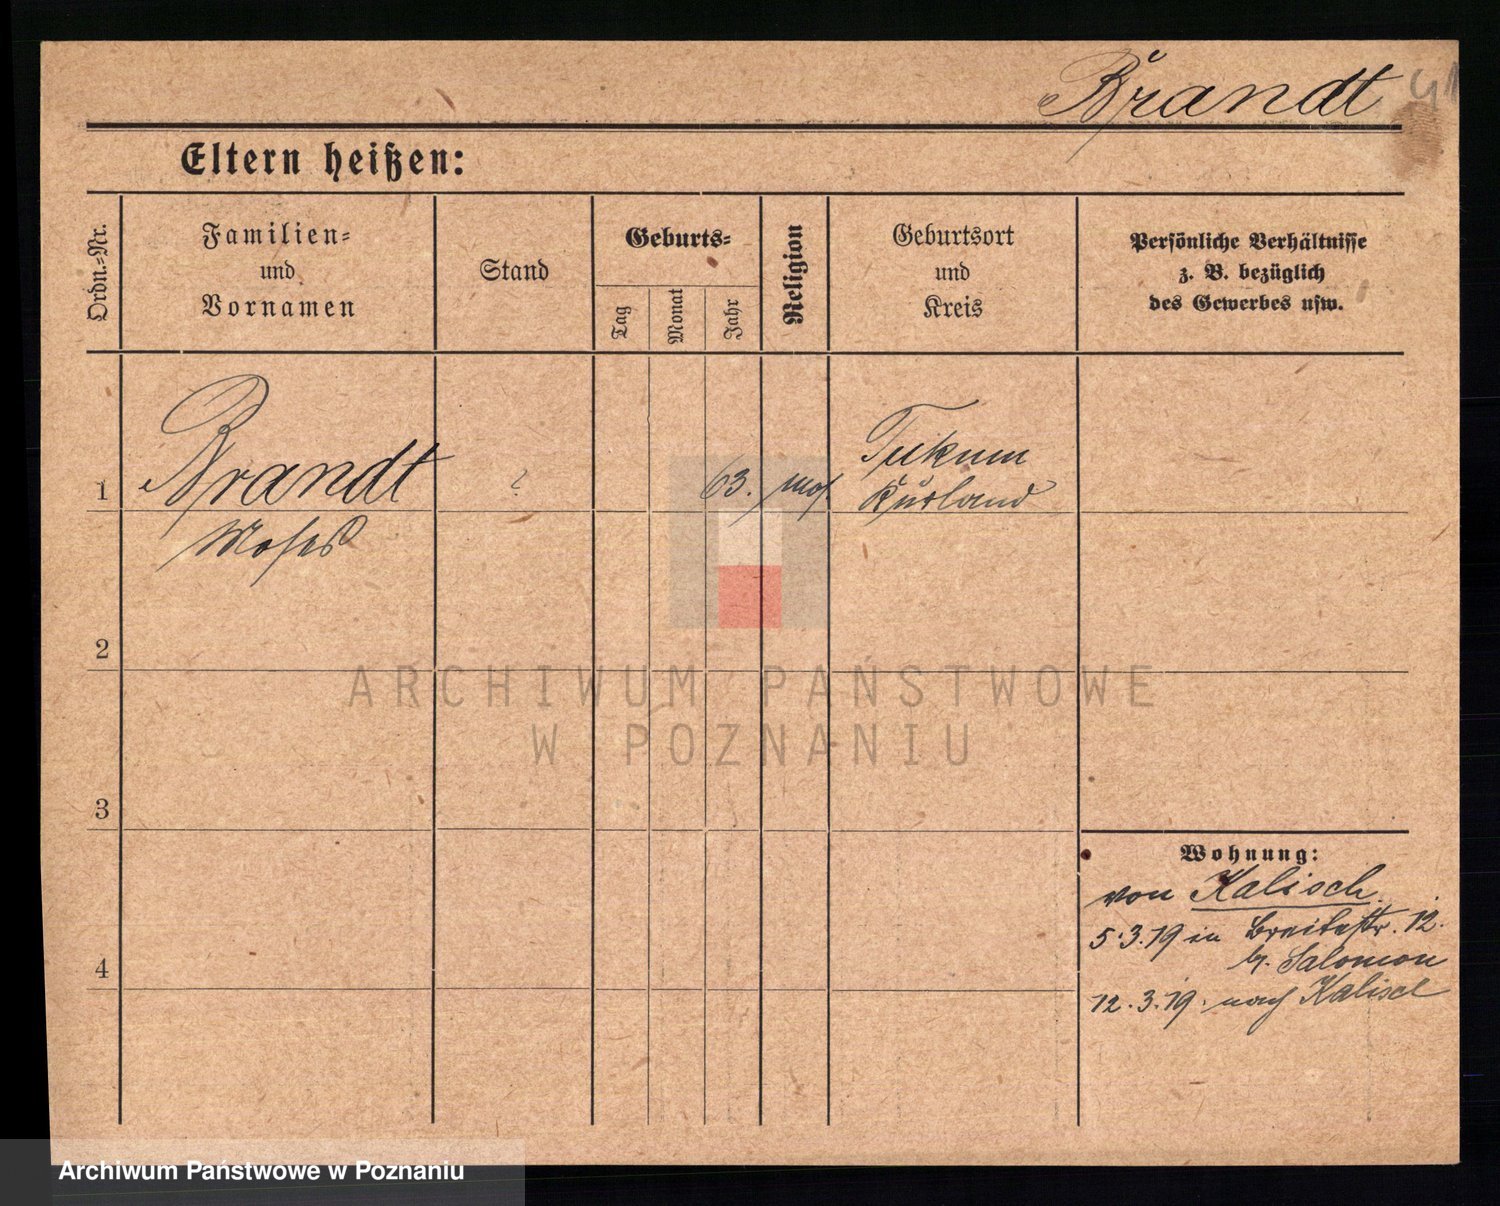 Brandt
41
Eltern heißen:
Ordn.-Nr.
Familien-
und
Vornamen
Stand
Geburts-
Tag
Monat
Jahr
Religion
Geburtsort
und
Kreis
Persönliche Verhältnisse
z. B. bezüglich
des Gewerbes usw.
1
Brandt
Moses
?
63.
mos.
Tukum
Kurland
2
3
4
Wohnung:
von Kalisch
5.3.19 in Breitestr. 12.
b. Salomon
12.3.19. nach Kalisch
ARCHIWUM PAŃSTWOWE
W POZNANIU
Archiwum Państwowe w Poznaniu